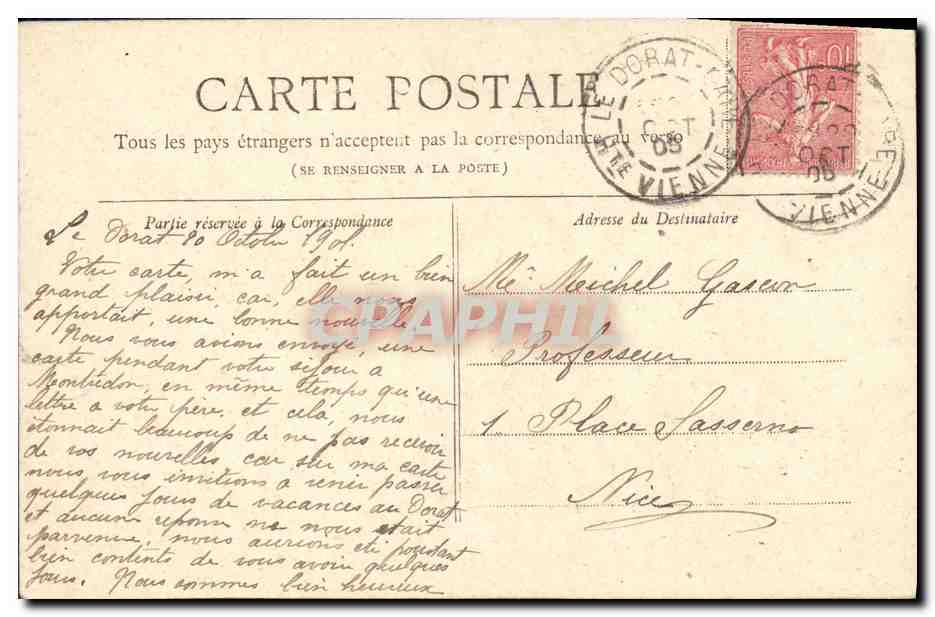 CARTE POSTALE
Tous les pays étrangers n'acceptent pas la correspondance au verso
(SE RENSEIGNER A LA POSTE)
LE DORAT
OCT
05
Hte VIENNE
10
DORAT
OCT
05
VIENNE
Partie réservée à la Correspondance
Adresse du Destinataire
Le Dorat 20 Octobr 190
Votre carte, m'a fait un bien
grand plaisir, car, elle nous
apportait, une bonne nouvelle.
Nous vous avions envoyé, une
carte pendant votre séjour à
Montredon, en même temps qu'une
lettre à votre père, et cela, nous
étonnait beaucoup de ne pas recevoir
de vos nouvelles car sur ma carte
nous vous invitions à venir passer
quelques jours de vacances au Dorat
et aucune reponse ne nous etait
parvenue, nous aurions eté pourtant
bien contents de vous avoir quelques
jours. Nous sommes bien heureux
CPAPHIL
Mr Michel Gascon
Professeur
1 Place Sasserno
Nice